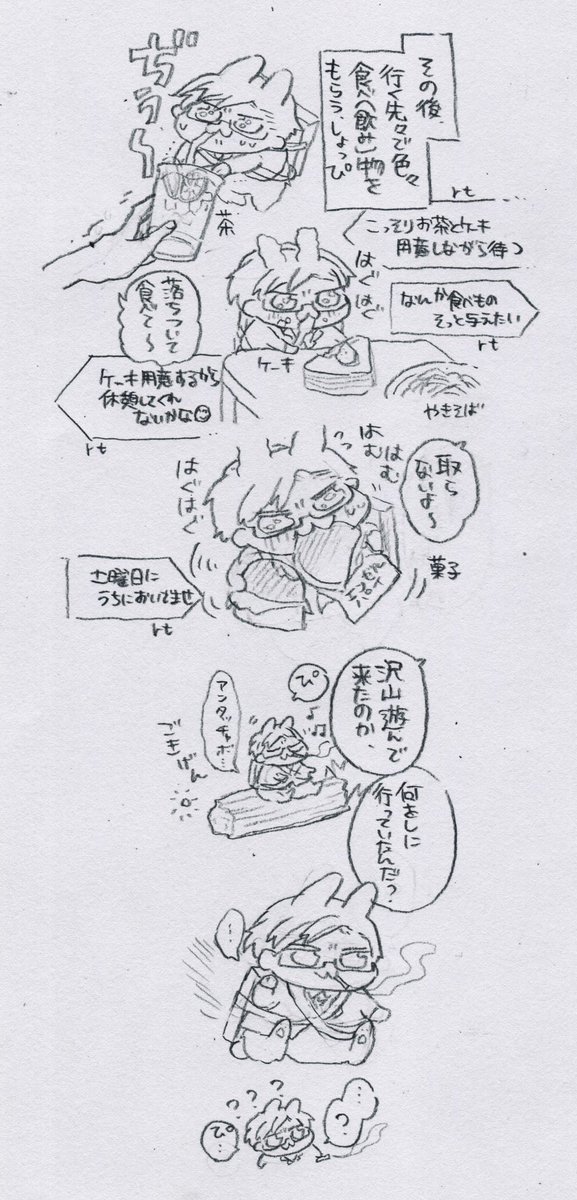 その後、
行く先々で色々
食べ(飲み)物を
もらう、しょっぴ
ぢぅ〜
茶
rt
こっそりお茶とケーキ
用意しながら待つ
はぐ
はぐ
なんか食べもの
そっと与えたい
rt
落ちついて
食べて〜
ケーキ
やきそば
ケーキ用意するから
休憩してくれ
ないかな
rt
取ら
ないよ〜
はむ
はむ
はぐはぐ
菓子
土曜日に
うちにおいでませ
rt
沢山遊んで
来たのか、
ぴ
アンタッチャボ…
ごきげん
何をしに
行っていたんだ?
…
???
…
?
ぴ…